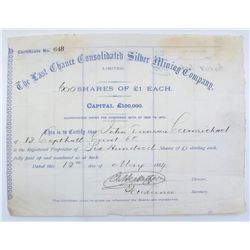 Certificate No. 648
The Last Chance Consolidated Silver Mining Company,
LIMITED.
600 SHARES OF £1 EACH.
CAPITAL £100,000.
This is to Certify that John Duncan Carmichael
of 13 Copthall Court
is the Registered Proprietor of Six Hundred Shares of £1 sterling each,
fully paid up and numbered as at back.
Dated this 12th of May 1884
Director.
Secretary.